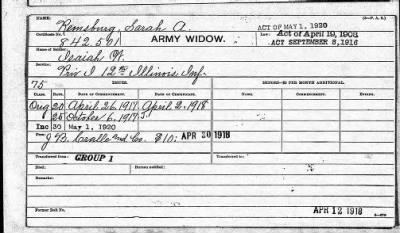 3—P. A. S.
NAME: Remsburg, Sarah A. ACT OF MAY 1, 1920
Certificate No. 842.501 ARMY WIDOW. Law: Act of April 19, 1908
ACT SEPTEMBER 8, 1916
Name of Soldier: Isaiah W.
Service: Priv I 12th Illinois Inf.
75 ISSUES.
CLASS. RATE. DATE OF COMMENCEMENT. DATE OF CERTIFICATE. DATE OF COMMENCEMENT. DATE OF CERTIFICATE.
Orig 20 April 26 1917 April 2, 1918
25 October 6, 1917
Inc 30 May 1, 1920
J B. and Co. $10: APR 20 1918
Transferred from: GROUP 1
Died: Bureau notified:
Remarks:
Former Roll No. APR 12 1918